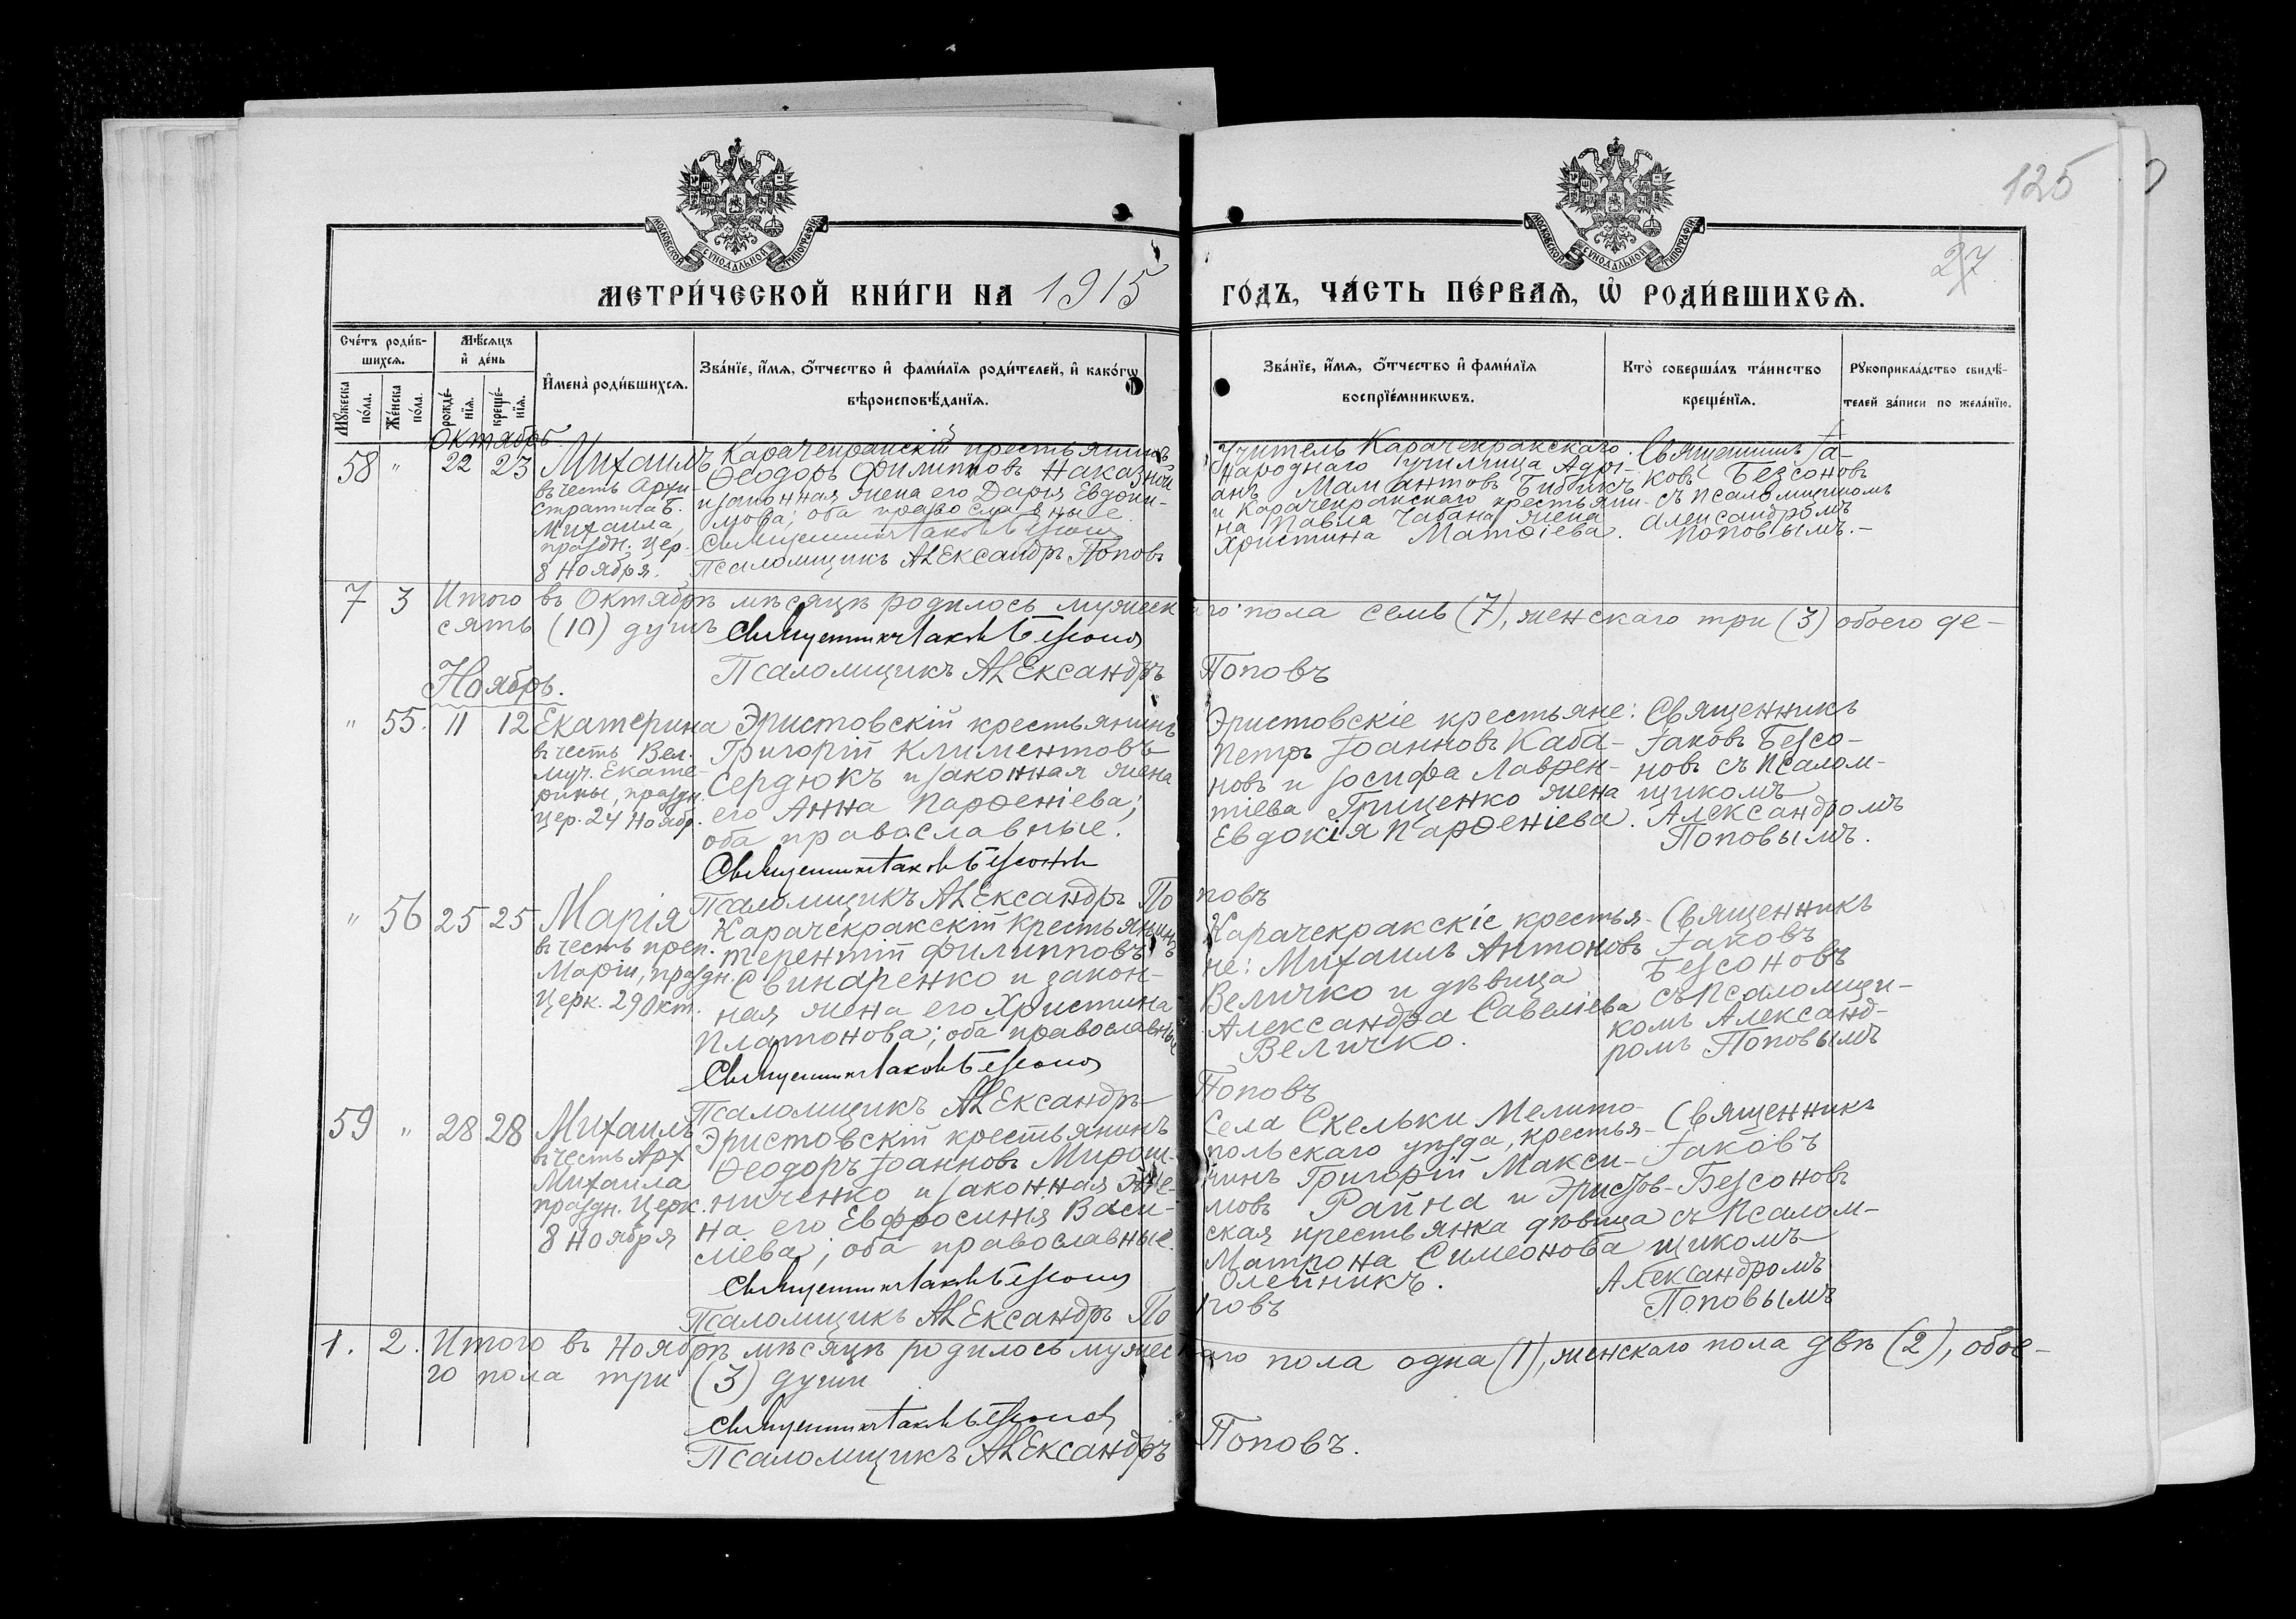 125
27
МОСКОВСКОЙ СУНОДАЛЬНОЙ ТИПОГРАФІИ
МОСКОВСКОЙ СУНОДАЛЬНОЙ ТИПОГРАФІИ
МЕТРИ́ЧЕСКОЙ КНИ́ГИ НА 1915 ГО́ДЪ, ЧА́СТЬ ПЕ́РВАѦ, Ѡ҆ РОДИ́ВШИХСѦ.
Сче́тъ роди́в-
шихсѧ.
Мꙋжеска по́ла.
Же́нска по́ла.
Мѣ́сѧцъ
и҆ де́нь
рожде́-
нїѧ.
креще́-
нїѧ.
И҆мена̀ роди́вшихсѧ.
Зва́нїе, и҆́мѧ, ѻ҆́тчество и҆ фами́лїѧ роди́телей, и҆ како́гѡ
вѣроисповѣ́данїѧ.
Зва́нїе, и҆́мѧ, ѻ҆́тчество и҆ фами́лїѧ
воспрїе́мникѡвъ.
Кто̀ соверша́лъ та́инство
креще́нїѧ.
Рꙋкоприкла́дство свидѣ́-
телей за́писи по жела́нїю.
Октябрь.
58 " 22 23
Михаилъ
въ честь Архи-
стратига Б.
Михаила,
праздн. цер.
8 Ноября.
Карачекракскій крестьянинъ
Ѳеодоръ Филипповъ Наказной
и законная жена его Дарія Евдоки-
мова; оба православные.
Священникъ Іаковъ Безсоновъ
Псаломщикъ Александръ Поповъ
Учитель Карачекракскаго
народнаго училища Адрі-
анъ Мамантовъ Бибикъ
и Карачекракскаго крестьяни-
на Павла Чабана жена
Христина Матѳіева.
Священникъ Іа-
ковъ Безсоновъ
съ псаломщикомъ
Александромъ
Поповымъ.-
7 3 Итого въ Октябрѣ мѣсяцѣ родилось мужескаго пола семь (7), женскаго три (3) обоего де-
сять (10) душъ
Священникъ Іаковъ Безсоновъ
Псаломщикъ Александръ Поповъ
Ноябрь.
" 55. 11 12
Екатерина
въ честь Вел.
муч. Екате-
рины, праздн.
цер. 24 Ноябр.
Эристовскій крестьянинъ
Григорій Климентовъ
Сердюкъ и законная жена
его Анна Парѳеніева;
оба православные.
Священникъ Іаковъ Безсоновъ
Псаломщикъ Александръ Поповъ
Эристовскіе крестьяне:
Петръ Іоанновъ Каба-
новъ и Іосифа Лаврен-
тіева Гриценко жена
Евдокія Парѳеніева.
Священникъ
Іаковъ Безсо-
новъ съ Псалом-
щикомъ
Александромъ
Поповымъ.
" 56 25 25
Марія
въ честь преп.
Маріи, праздн.
Церк. 29 Окт.
Карачекракскій крестьянинъ
Терентій Филипповъ
Свинаренко и закон-
ная жена его Христина
Платонова; оба православные
Священникъ Іаковъ Безсоновъ
Псаломщикъ Александръ Поповъ
Карачекракскіе крестья-
не: Михаилъ Антоновъ
Величко и дѣвица
Александра Савеліева
Величко.
Священникъ
Іаковъ
Безсоновъ
съ псаломщи-
комъ Александ-
ромъ Поповымъ
59 " 28 28
Михаилъ
въ честь Арх
Михаила
праздн. Церк.
8 Ноября
Эристовскій крестьянинъ
Ѳеодоръ Іоанновъ Мирош-
ниченко и законная же-
на его Евфросинія Васи-
ліева; оба православные.
Священникъ Іаковъ Безсоновъ
Псаломщикъ Александръ Поповъ
Села Скельки Мелито-
польскаго уѣзда, крестья-
нинъ Григорій Макси-
мовъ Райна и Эристов-
ская крестьянка дѣвица
Матрона Симеонова
Олейникъ.
Священникъ
Іаковъ
Безсоновъ
съ Псалом-
щикомъ
Александромъ
Поповымъ
1. 2. Итого въ Ноябрѣ мѣсяцѣ родилось мужескаго пола одна (1), женскаго пола двѣ (2), обое-
го пола три (3) души
Священникъ Іаковъ Безсоновъ
Псаломщикъ Александръ Поповъ.